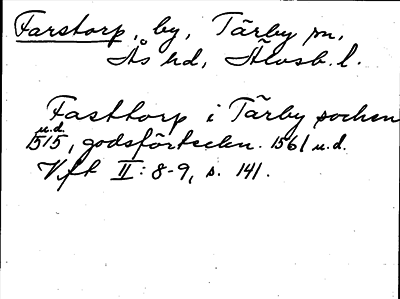 Farstorp, by, Tärby sn,
Ås hd, Älvsb. l.
Fasttorp i Tärby socken
u.d.
1515, godsförteckn. 1561 u.d.
Vft II: 8-9, s. 141.